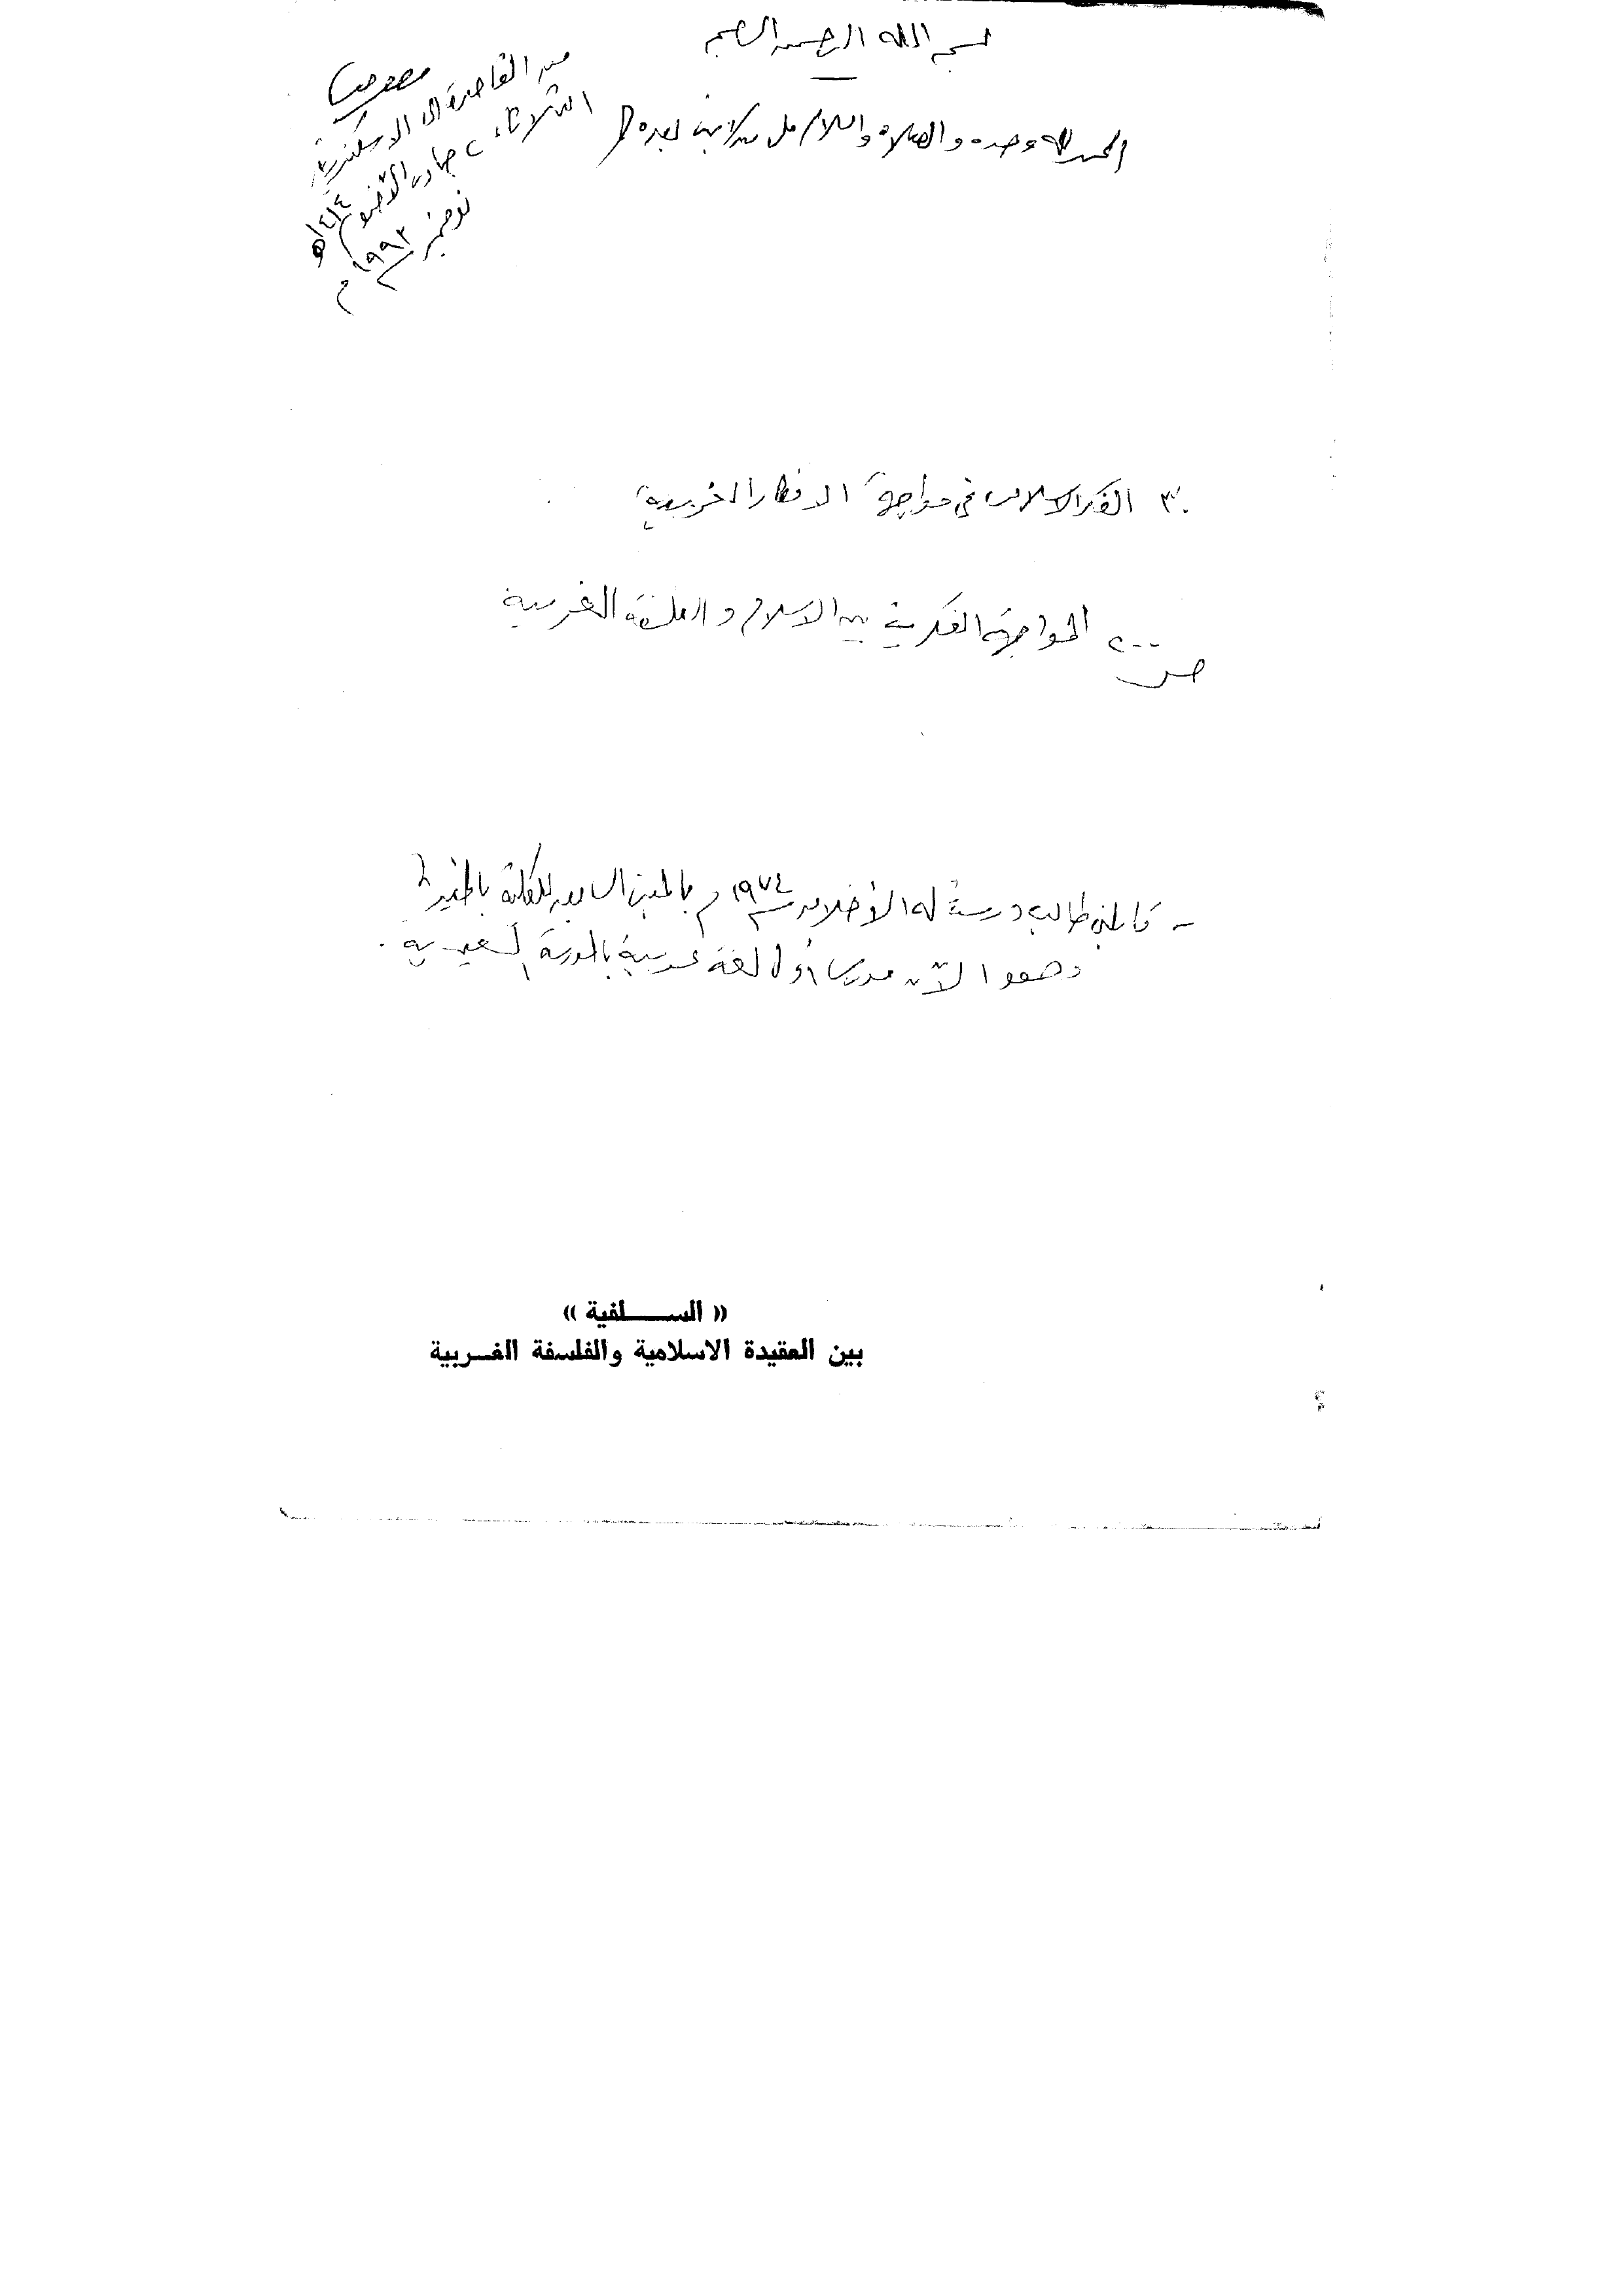 بسم الله الرحمن الرحيم
الحمد لله وحده والصلاة والسلام على من لا نبي بعده
من القاهرة الى الاسكندرية
الثلاثاء ٢ جمادى الآخر ١٤١٤ هـ
نوفمبر ١٩٩٣ م
٣٠ الفكر الاسلامى في مواجهة الافكار الغربية
٢٠٠ المواجهة الفكرية بين الاسلام والفلسفة الغربية
ص
- قابلنى طالب درست له الأخلاق ١٩٧٤ م بالمبنى السابق للكلية
وهو الآن مدرس أول لغة عربية بالمدرسة السعيدية .
« السلفية »
بين العقيدة الاسلامية والفلسفة الغربية